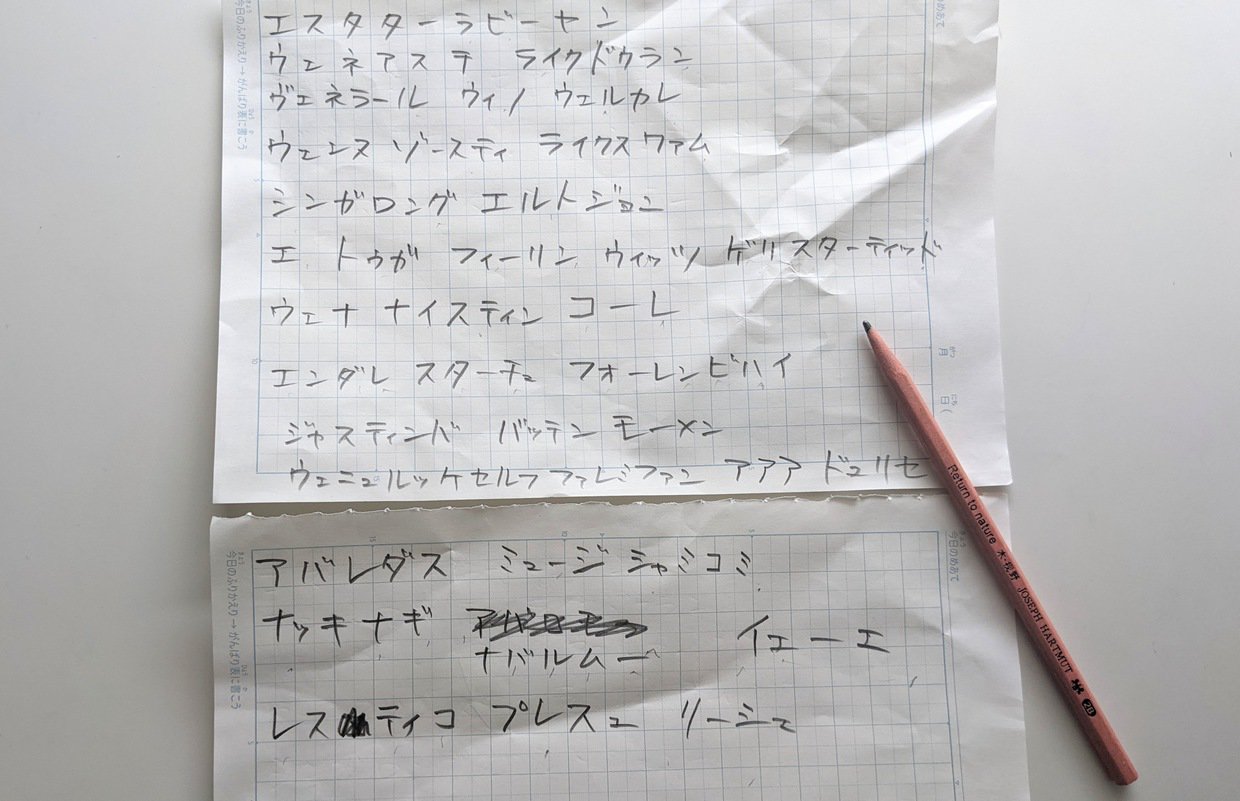 エスタターラビーヤン
ウェネアステ ライクドウラン
ヴェネラール ウィノ ウェルカレ
ウェンスゾースティ ライクスワァム
シンガロング エルトジョン
エ トゥガ フィーリン ウィッツノ ゲリスターティッド
ウェナ ナイスティン コーレ
エンダレ スターチェ フォーレンビハイ
ジャスティンバ バッテン モーメン
ウェニュルッケセルファァレミファン アアア ドュリセ
アバレダス ミュージシャミコミ
ナッキナギ
ナバルムー イェーエ
レスティコ プレスュ リーシェ
今日のふりかえり→がんばり表に書こう
今日のめあて
月 日(
今日のふりかえり→がんばり表に書こう
今日のめあて
Return to nature 木物語 JOSEPH HARTMUT 2B